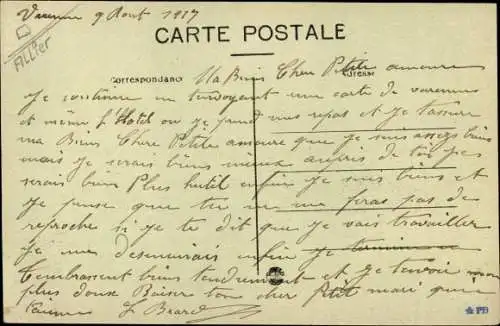 Varenne 9 Aout 1917
Allier
CARTE POSTALE
Correspondance Ma Bien Cher Ptite amoure
Adresse
Je continue en tenvoyant une carte de varennes
et même l'Hotel ou je prend mes repas et je tassure
ma Bien Chere Petite amoure que je suis assez bien
mais je serais bien mieux auprès de toi je
serais bien Plus enfin je suis bien et
je pense que tu ne me feras pas de
reproche si je te dit que je vais travailler
je me enfin je termine
Tembrassent bien tendrement et je tenvoi mon
plus doux Baiser ton cher Ptit mari qui
taime J Beard
PD